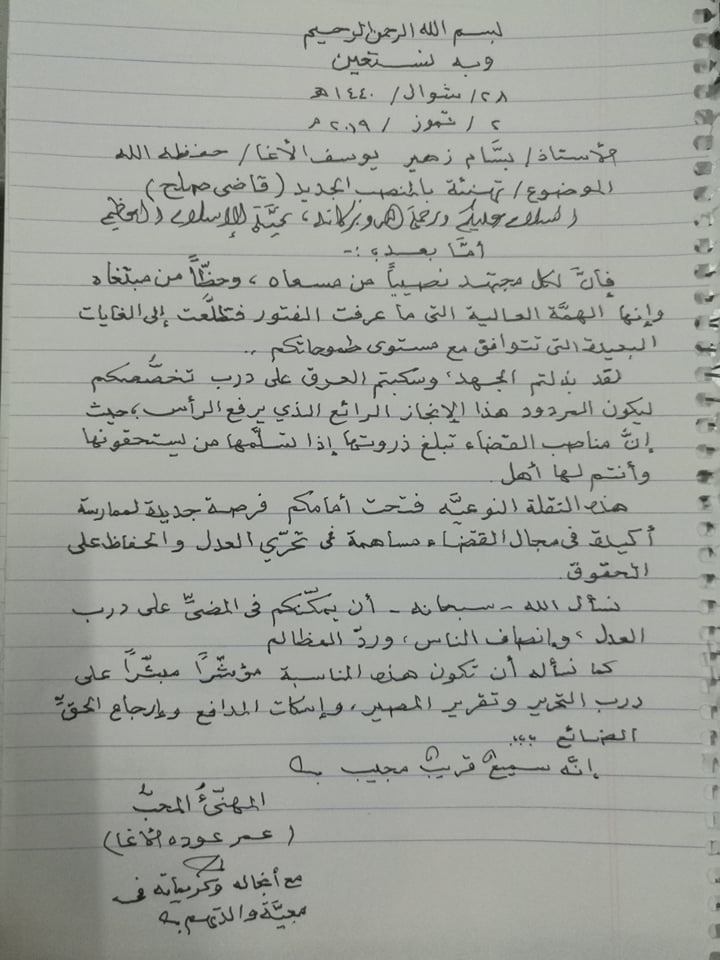 بسم الله الرحمن الرحيم
وبه نستعين
٢٨/ شوال/ ١٤٤٠هـ
٢ / تموز / ٢٠١٩م
الأستاذ/ بسَّام زهير يوسف الأغا/ حفظه الله
الموضوع/ تهنئة بالمنصب الجديد (قاضي صلح)
السلام عليكم ورحمة الله وبركاته، تحيَّة الإسلام العظيم
أمَّا بعد؛ :-
فإنَّ لكل مجتهد نصيباً من مسعاه، وحظّاً من مبتغاه
وإنها الهمَّة العالية التي ما عرفت الفتور فتطلَّعت إلى الغايات
البعيدة التي تتوافق مع مستوى طموحاتكم ..
لقد بذلتم الجهد، وسكبتم العرق على درب تخصُّصكم
ليكون المردود هذا الإنجاز الرائع الذي يرفع الرأس؛ حيث
إنَّ مناصب القضاء تبلغ ذروتها إذا تسلَّمها من يستحقونها
وأنتم لها أهل.
هذه النقلة النوعيَّه فتحت أمامكم فرصة جديدة لممارسة
أكيدة في مجال القضاء مساهمة في تحرّي العدل والحفاظ على
الحقوق.
نسأل الله - سبحانه - أن يمكّنكم في المضيِّ على درب
العدل، وإنصاف الناس، وردّ المظالم
كما نسأله أن تكون هذه المناسبة مؤشّراً مبشّراً على
درب التحرير وتقرير المصير، وإسكات المدافع وإرجاع الحقِّ
الضائع ...
إنَّه سميعٌ قريبٌ مجيب
المهنّئُ المحبُّ
(عمر عوده الأغا)
مع أنجاله وكريماته في
معيَّة والدتهم